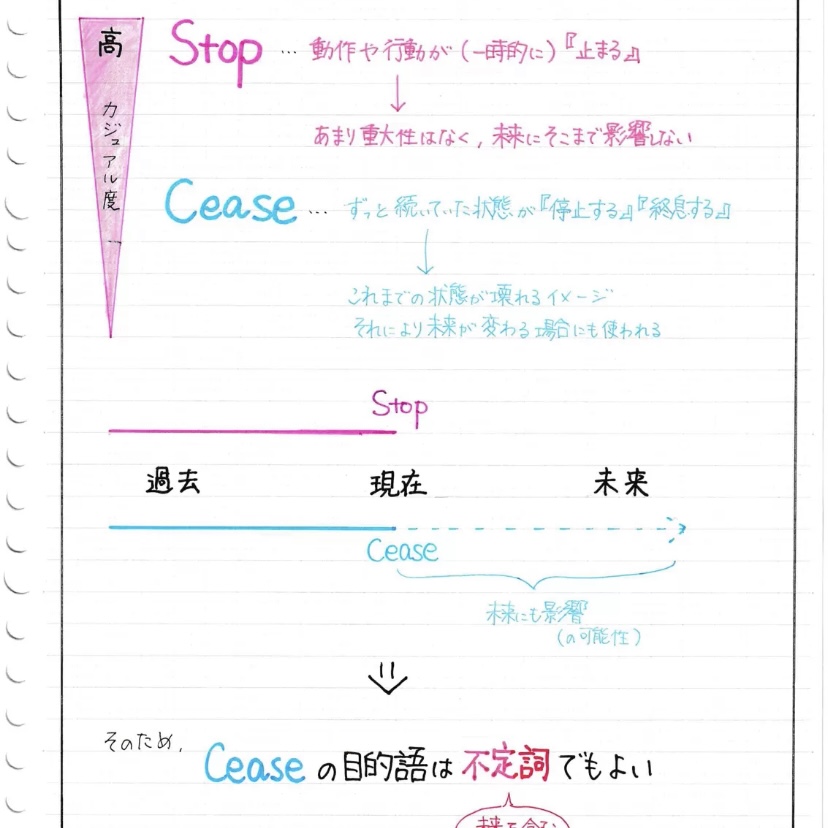 高
カジュアル度
Stop … 動作や行動が(一時的に)『止まる』
あまり重大性はなく,未来にそこまで影響しない
Cease … ずっと続いていた状態が『停止する』『終息する』
これまでの状態が壊れるイメージ
それにより未来が変わる場合にも使われる
Stop
過去 現在 未来
Cease
未来にも影響
(の可能性)
そのため,
Ceaseの目的語は不定詞でもよい